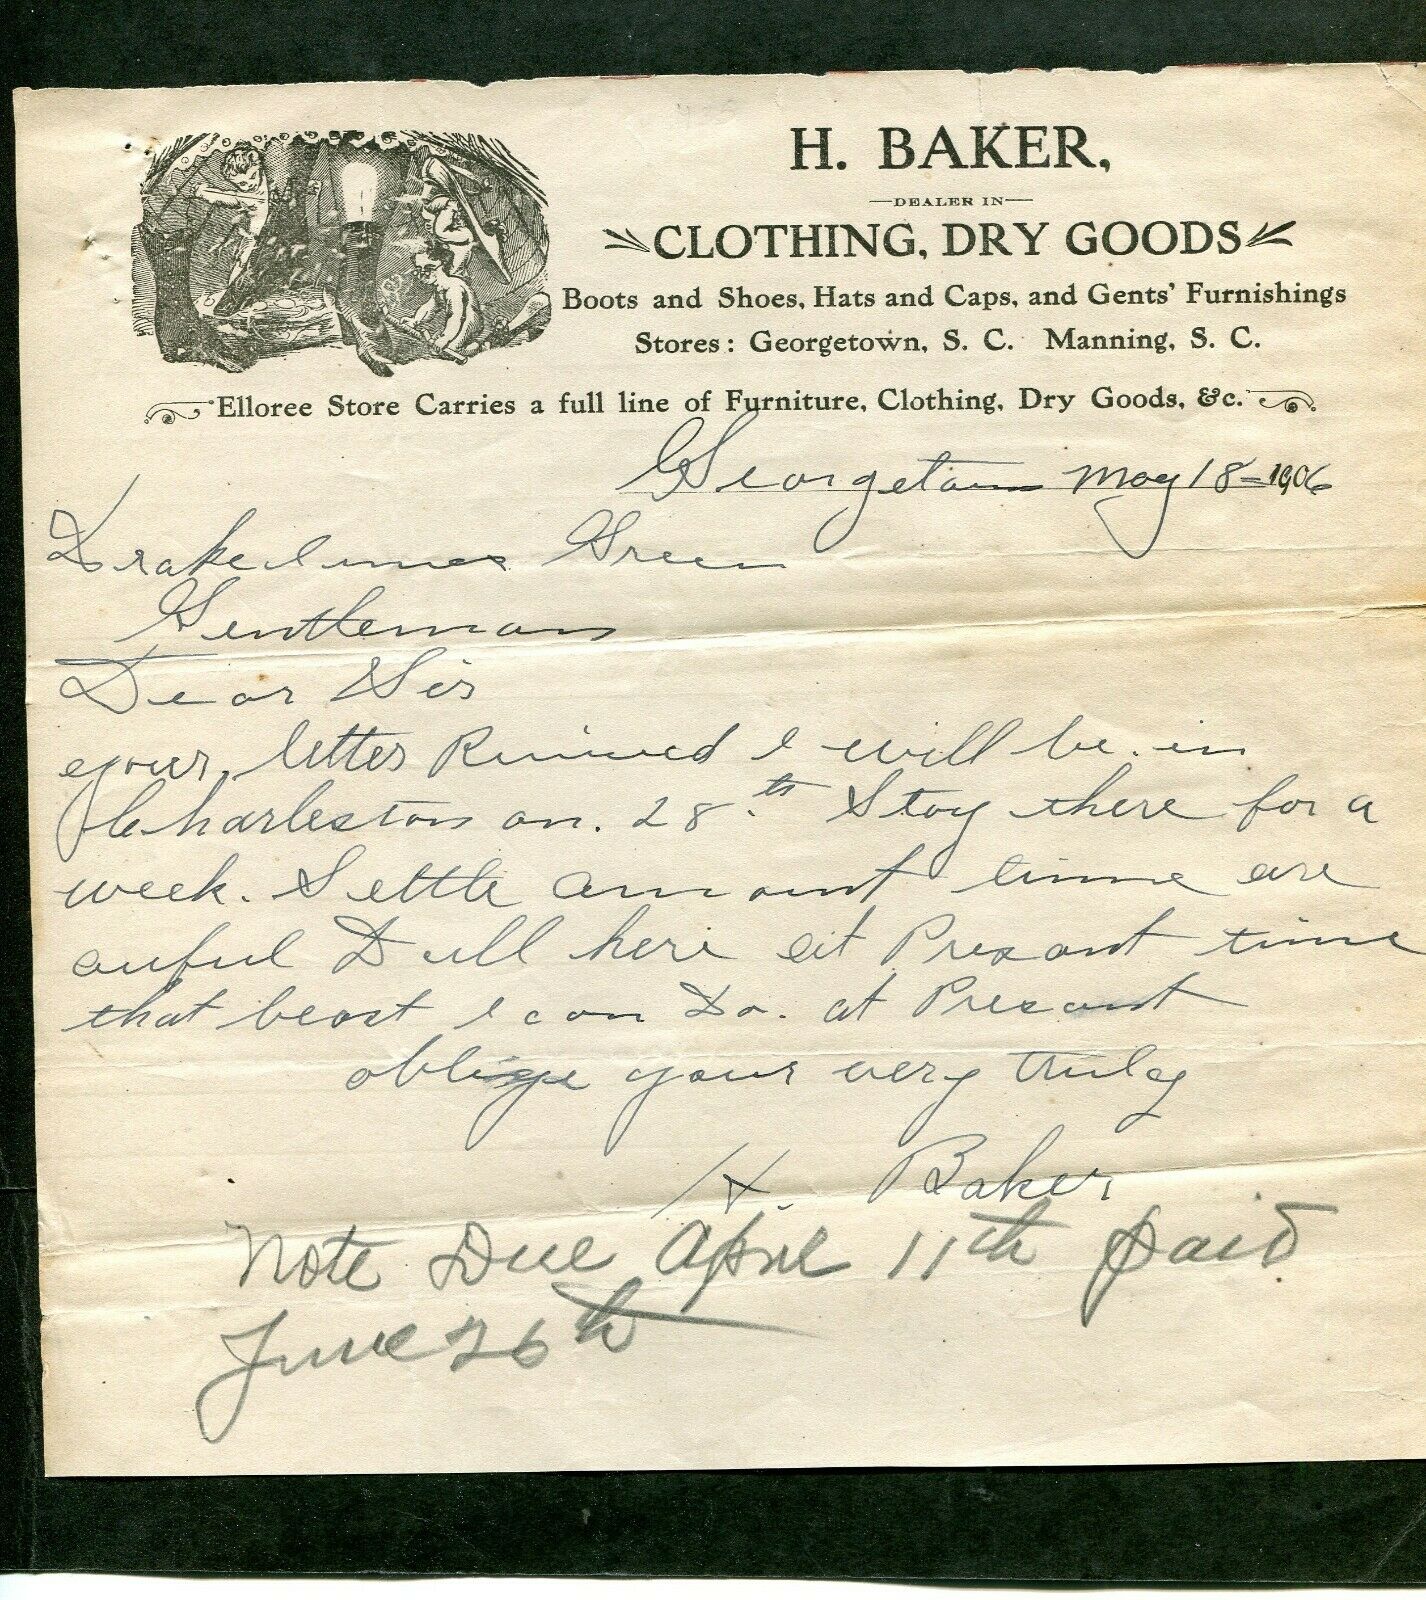 H. BAKER,
—DEALER IN—
CLOTHING, DRY GOODS
Boots and Shoes, Hats and Caps, and Gents' Furnishings
Stores: Georgetown, S. C. Manning, S. C.
Elloree Store Carries a full line of Furniture, Clothing, Dry Goods, &c.
Georgetown May 18 - 1906
Drake Green
Gentlemans
Dear Sir
your letter Received I will be in
Charleston on. 28.th Stay there for a
week. Settle amount time are
auful Dull here at Presant time
that beast I can Do. at Presant
oblige your very truly
H. Baker
Note Due April 11th paid
June 26th